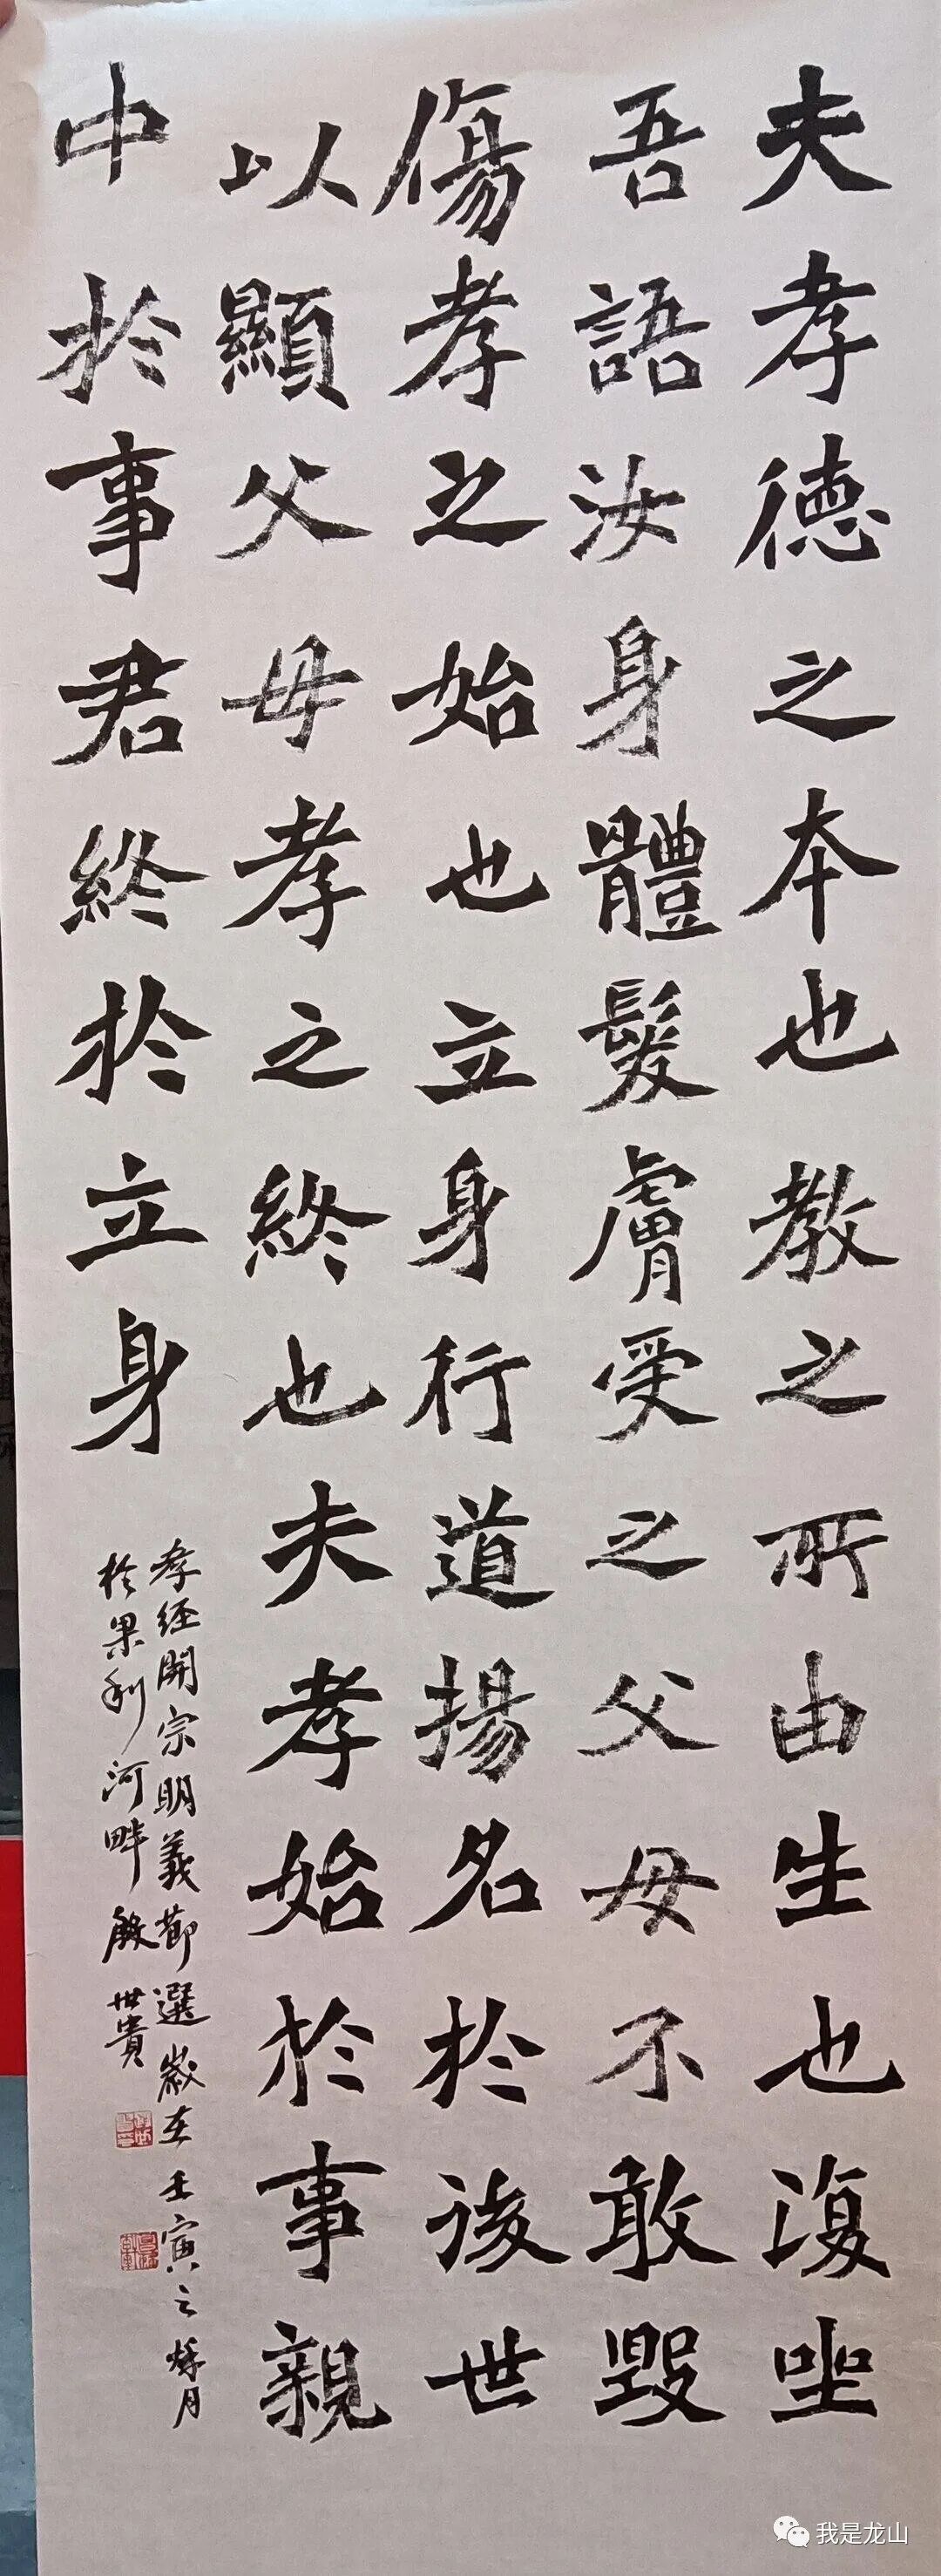 夫孝德之本也教之所由生也復坐
吾語汝身體髮膚受之父母不敢毀
傷孝之始也立身行道揚名於後世
以顯父母孝之終也夫孝始於事親
中於事君終於立身
孝經開宗明義節選歲在壬寅之秌月
於果利河畔殷世貴
我是龙山